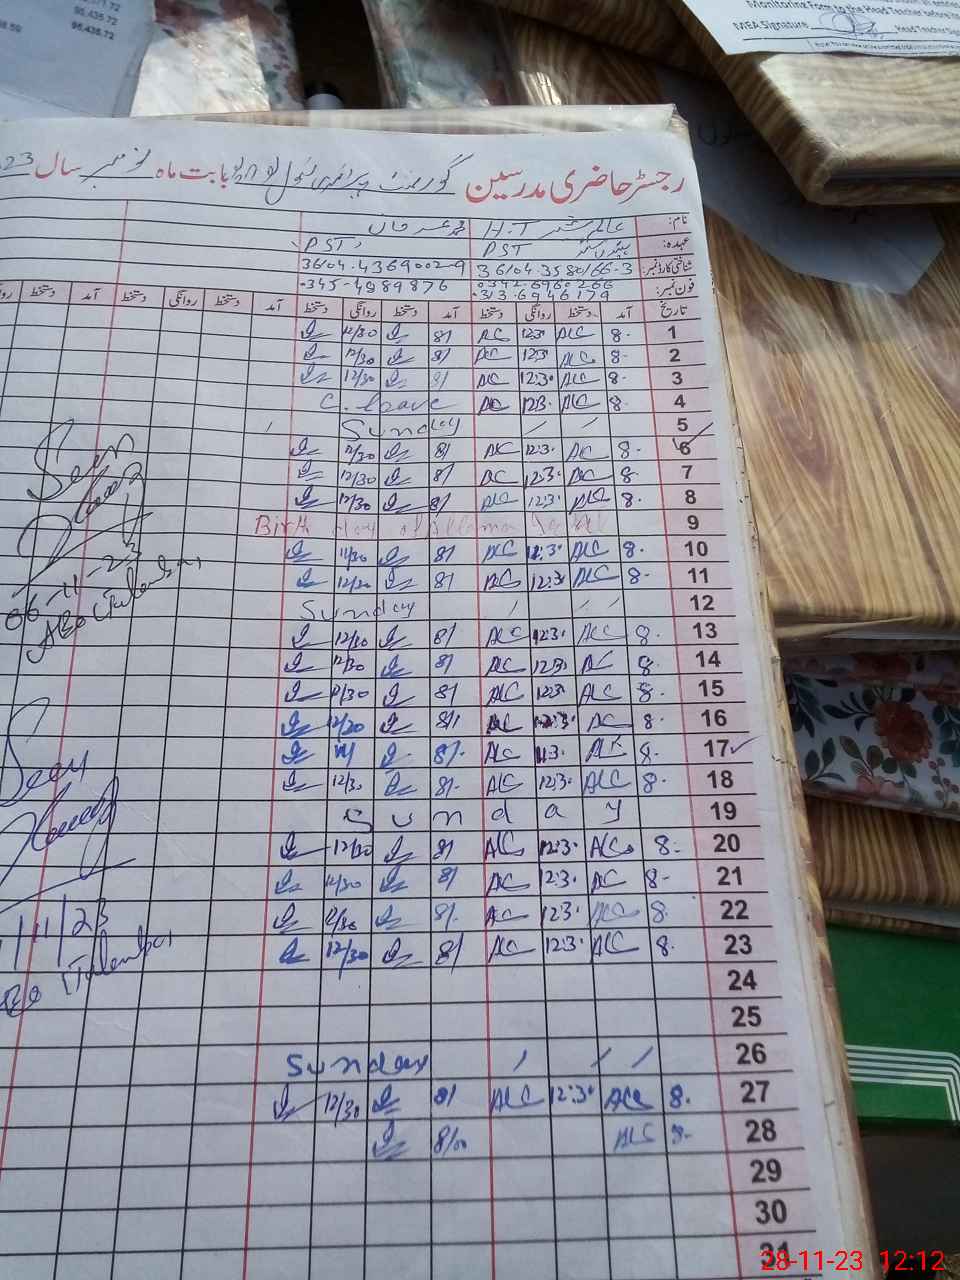 71.72
95,435.72
95,435.72
Monitoring Form to the Head Teacher before
MEA Signature Head Teacher
رجسٹر حاضری مدرسین گورنمنٹ پرائمری سکول بابت ماہ نومبر سال 23
نام: H.T محمد عمر خان
عہدہ: PST PST
شناختی کارڈ نمبر: 36104-3580166-3 36104-4369002-9
فون نمبر: 0342-6960266 0313-6946179 0345-4989876
تاریخ آمد دستخط روانگی دستخط آمد دستخط روانگی دستخط آمد دستخط روانگی دستخط آمد
1 8- ALC 12:3. ALC 8/ 12/30
2 8- ALC 12:3 ALC 8/ 12/30
3 8- ALC 12:3. ALC 8/ 12/30
4 8- ALC 12:3. ALC C. leave
5 Sunday
6 8- ALC 12:3. ALC 8/ 12/30
7 8- ALC 12:3. ALC 8/ 12/30
8 8- ALC 12:3. ALC 8/ 12/30
9 Birth day of Allama Iqbal
10 8- ALC 11:3. ALC 8/ 11/30
11 8- ALC 12:3. ALC 8/ 12/30
12 Sunday
13 8- ALC 12:3. ALC 8/ 12/30
14 8- ALC 12:3. ALC 8/ 12/30
15 8- ALC 12:3. ALC 8/ 12/30
16 8- ALC 12:3. ALC 8/ 12/30
17 8- ALC 11:3. ALC 8/-
18 8- ALC 12:3. ALC 8/- 12/3.
19 Sunday
20 8- ALC 12:3. ALC 8/ 12/30
21 8- ALC 12:3. ALC 8/ 12/30
22 8- ALC 12:3. ALC 8/- 12/30
23 8- ALC 12:3. ALC 8/ 12/30
24
25
26 Sunday
27 8- ALC 12:3. ALC 8/ 12/30
28 8- ALC 8/00
29
30
31
Seen
06-11-23
AEO
Seen
/11/23
AEO
28-11-23 12:12